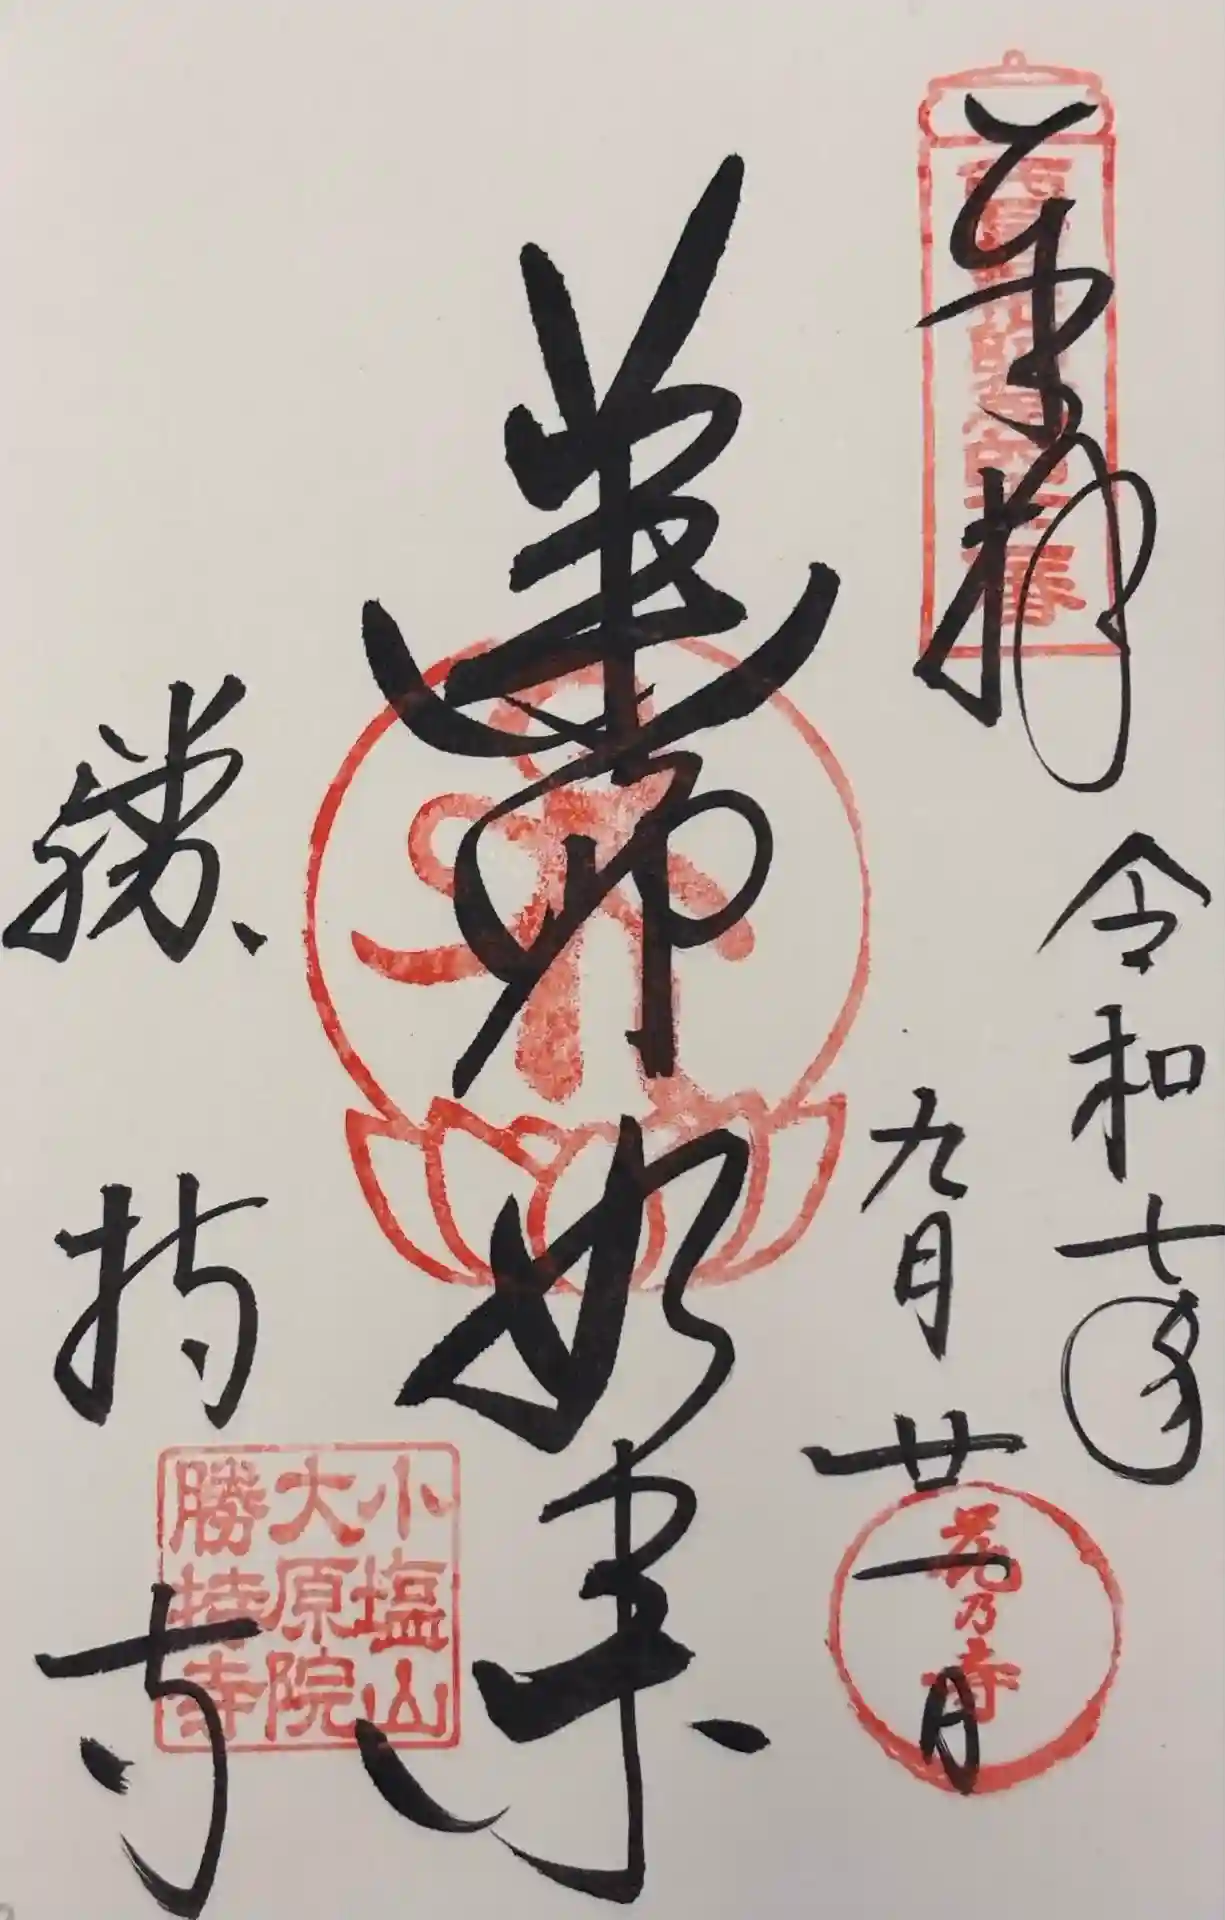 奉拝
令和七年
九月廿一日
花乃寺
薬師如来
小塩山
大原院
勝持寺
勝持寺